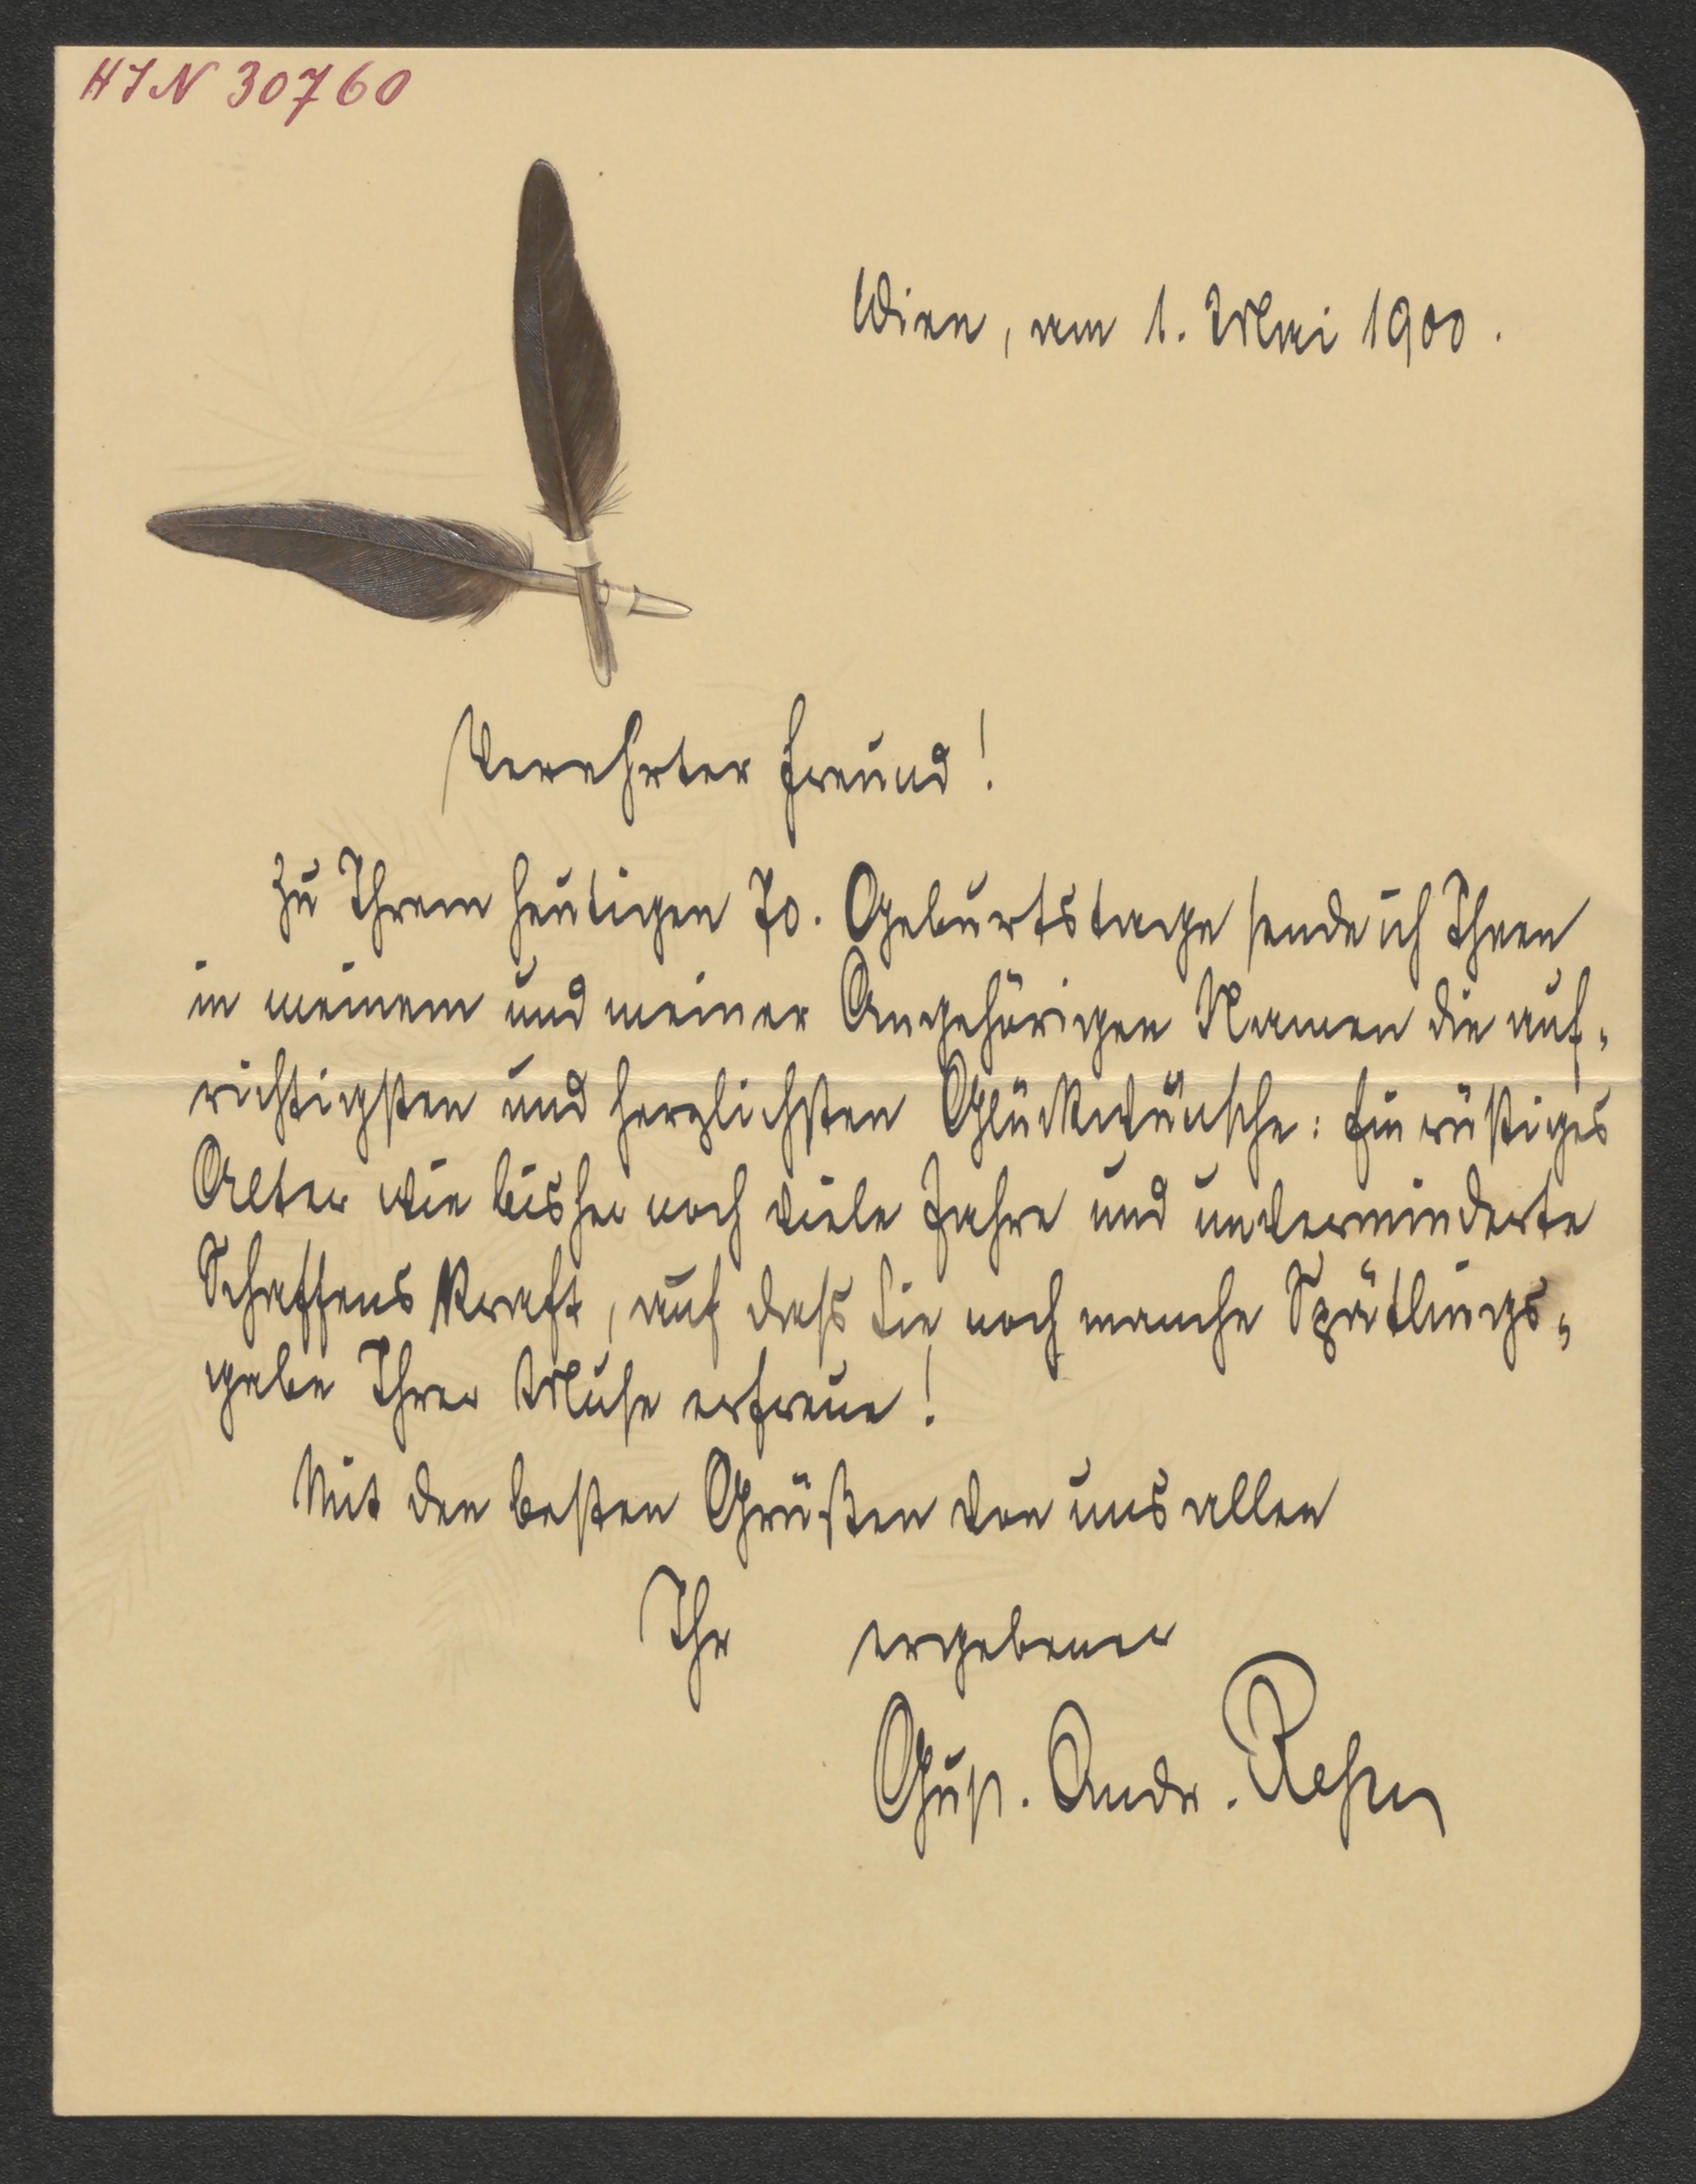 HIN 30760
Wien, am 1. Mai 1900.
Verehrter Freund!
Zu Ihrem heutigen 70. Geburtstage sende ich Ihnen
in meinem und meiner Angehörigen Namen die auf-
richtigsten und herzlichsten Glückwünsche: Ein rüstiges
Alter wie bisher noch viele Jahre und unverminderte
Schaffens Kraft, auf dass Sie noch manche Spätlings-
gabe Ihrer Muse erfreue!
Mit den besten Grüßen von uns allen
Ihr ergebener
Gust. Andr. Ressel